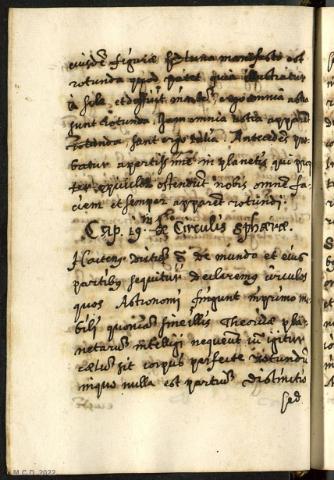 eiusdē figuræ sed luna manifeste est
rotunda quod patet quia illustratur
à sole, et ergo omnia astra
sunt rotunda. Item omnia astra apparēt
rotunda, sunt ergo talia. Antecedēs pro-
batur apertissime in planetis qui prop
ter epiciclos ostendunt nobis omnē fa-
ciem et semper apparēt rotundi.
Cap. 19. de Circulis Sphæræ.
Hactenus dictū ē de mundo et eius
partibus sequitur declaremus circulos
quos Astronomi fingunt in primo mo-
bili, quoniam sine illis Theoriæ pla-
netarū intelligi nequeunt igitur
cælum sit corpus perfecte rotundū
inquo nulla est partium distinctio
sed
M.C.D. 2022